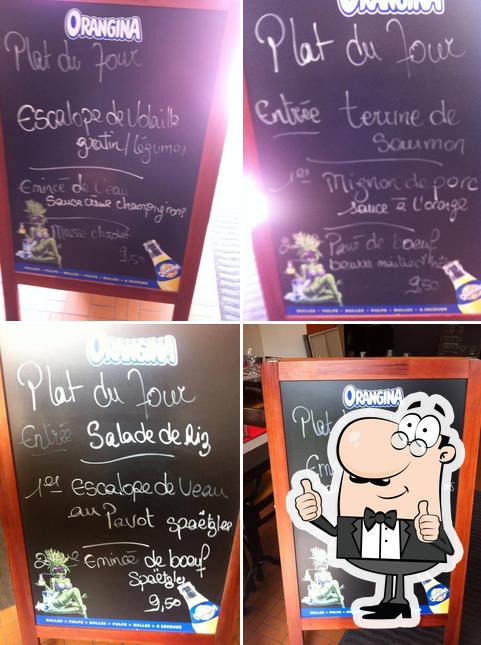 ORANGINA
Plat du Jour
Escalope de Volaille
gratin / légumes
Emincé de Veau
sauce crème champignons
Mousse chocolat
9,50
BULLES • PULPE • BULLES • PULPE • BULLES • A SECOUER
ORANGINA
Plat du Jour
Entrée terrine de
Saumon
1er Mignon de porc
sauce à l'orange
Pavé de boeuf
beurre maitre d'hôtel
9,50
BULLES • PULPE • BULLES • PULPE • BULLES • A SECOUER
ORANGINA
Plat du Jour
Entrée Salade de Riz
1er Escalope de Veau
au Pavot spaëtzles
2ème Emincé de boeuf
Spaëtzles
9,50
BULLES • PULPE • BULLES • PULPE • BULLES • A SECOUER
ORANGINA
Plat
BULLES